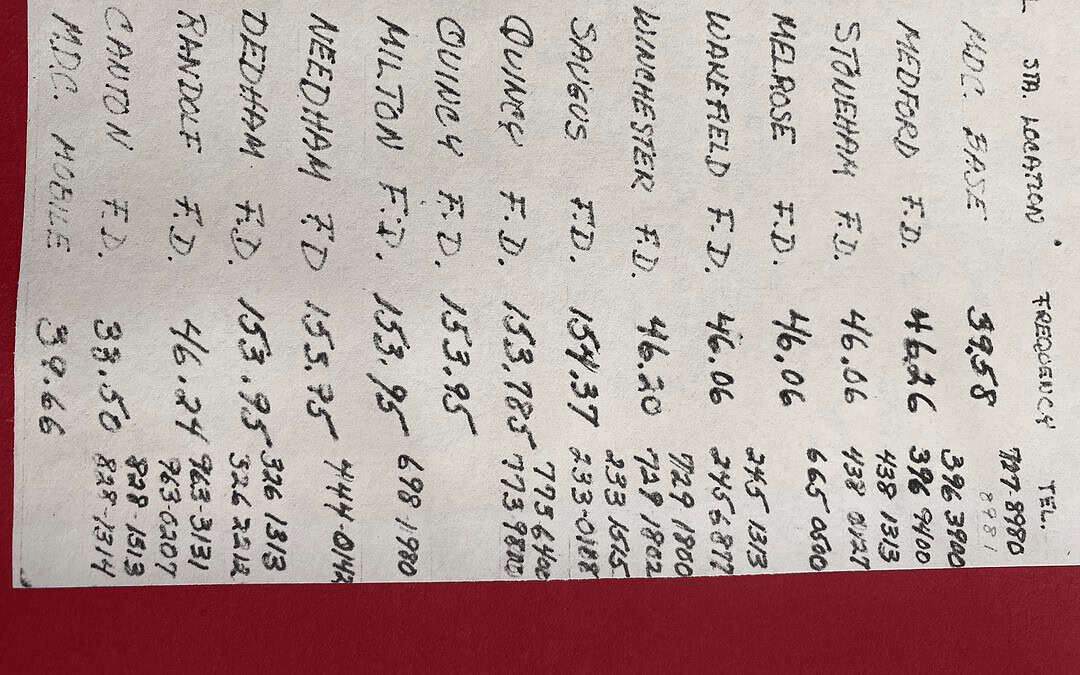 STA. LOCATION FREQUENCY TEL.
727-8980
MDC BASE 39.58 8981
396 3900
MEDFORD F.D. 46.26 396 9400
438 1313
STONEHAM F.D. 46.06 438 0127
MELROSE F.D. 46.06 665 0500
245 1313
WAKEFIELD F.D. 46.06 245 6877
729 1800
WINCHESTER F.D. 46.20 729 1802
233 1515
SAUGUS F.D. 154.37 233-0188
773 6400
QUINCY F.D. 153.785 773 9800
QUINCY F.D. 153.95
MILTON F.D. 153.95 698 1980
NEEDHAM F.D 153.75 444-0142
326 1313
DEDHAM F.D. 153.95 326 2212
963-3131
RANDOLF F.D. 46.24 963-0207
828-1313
CANTON F.D. 33.50 828-1314
M.D.C. MOBILE 39.66